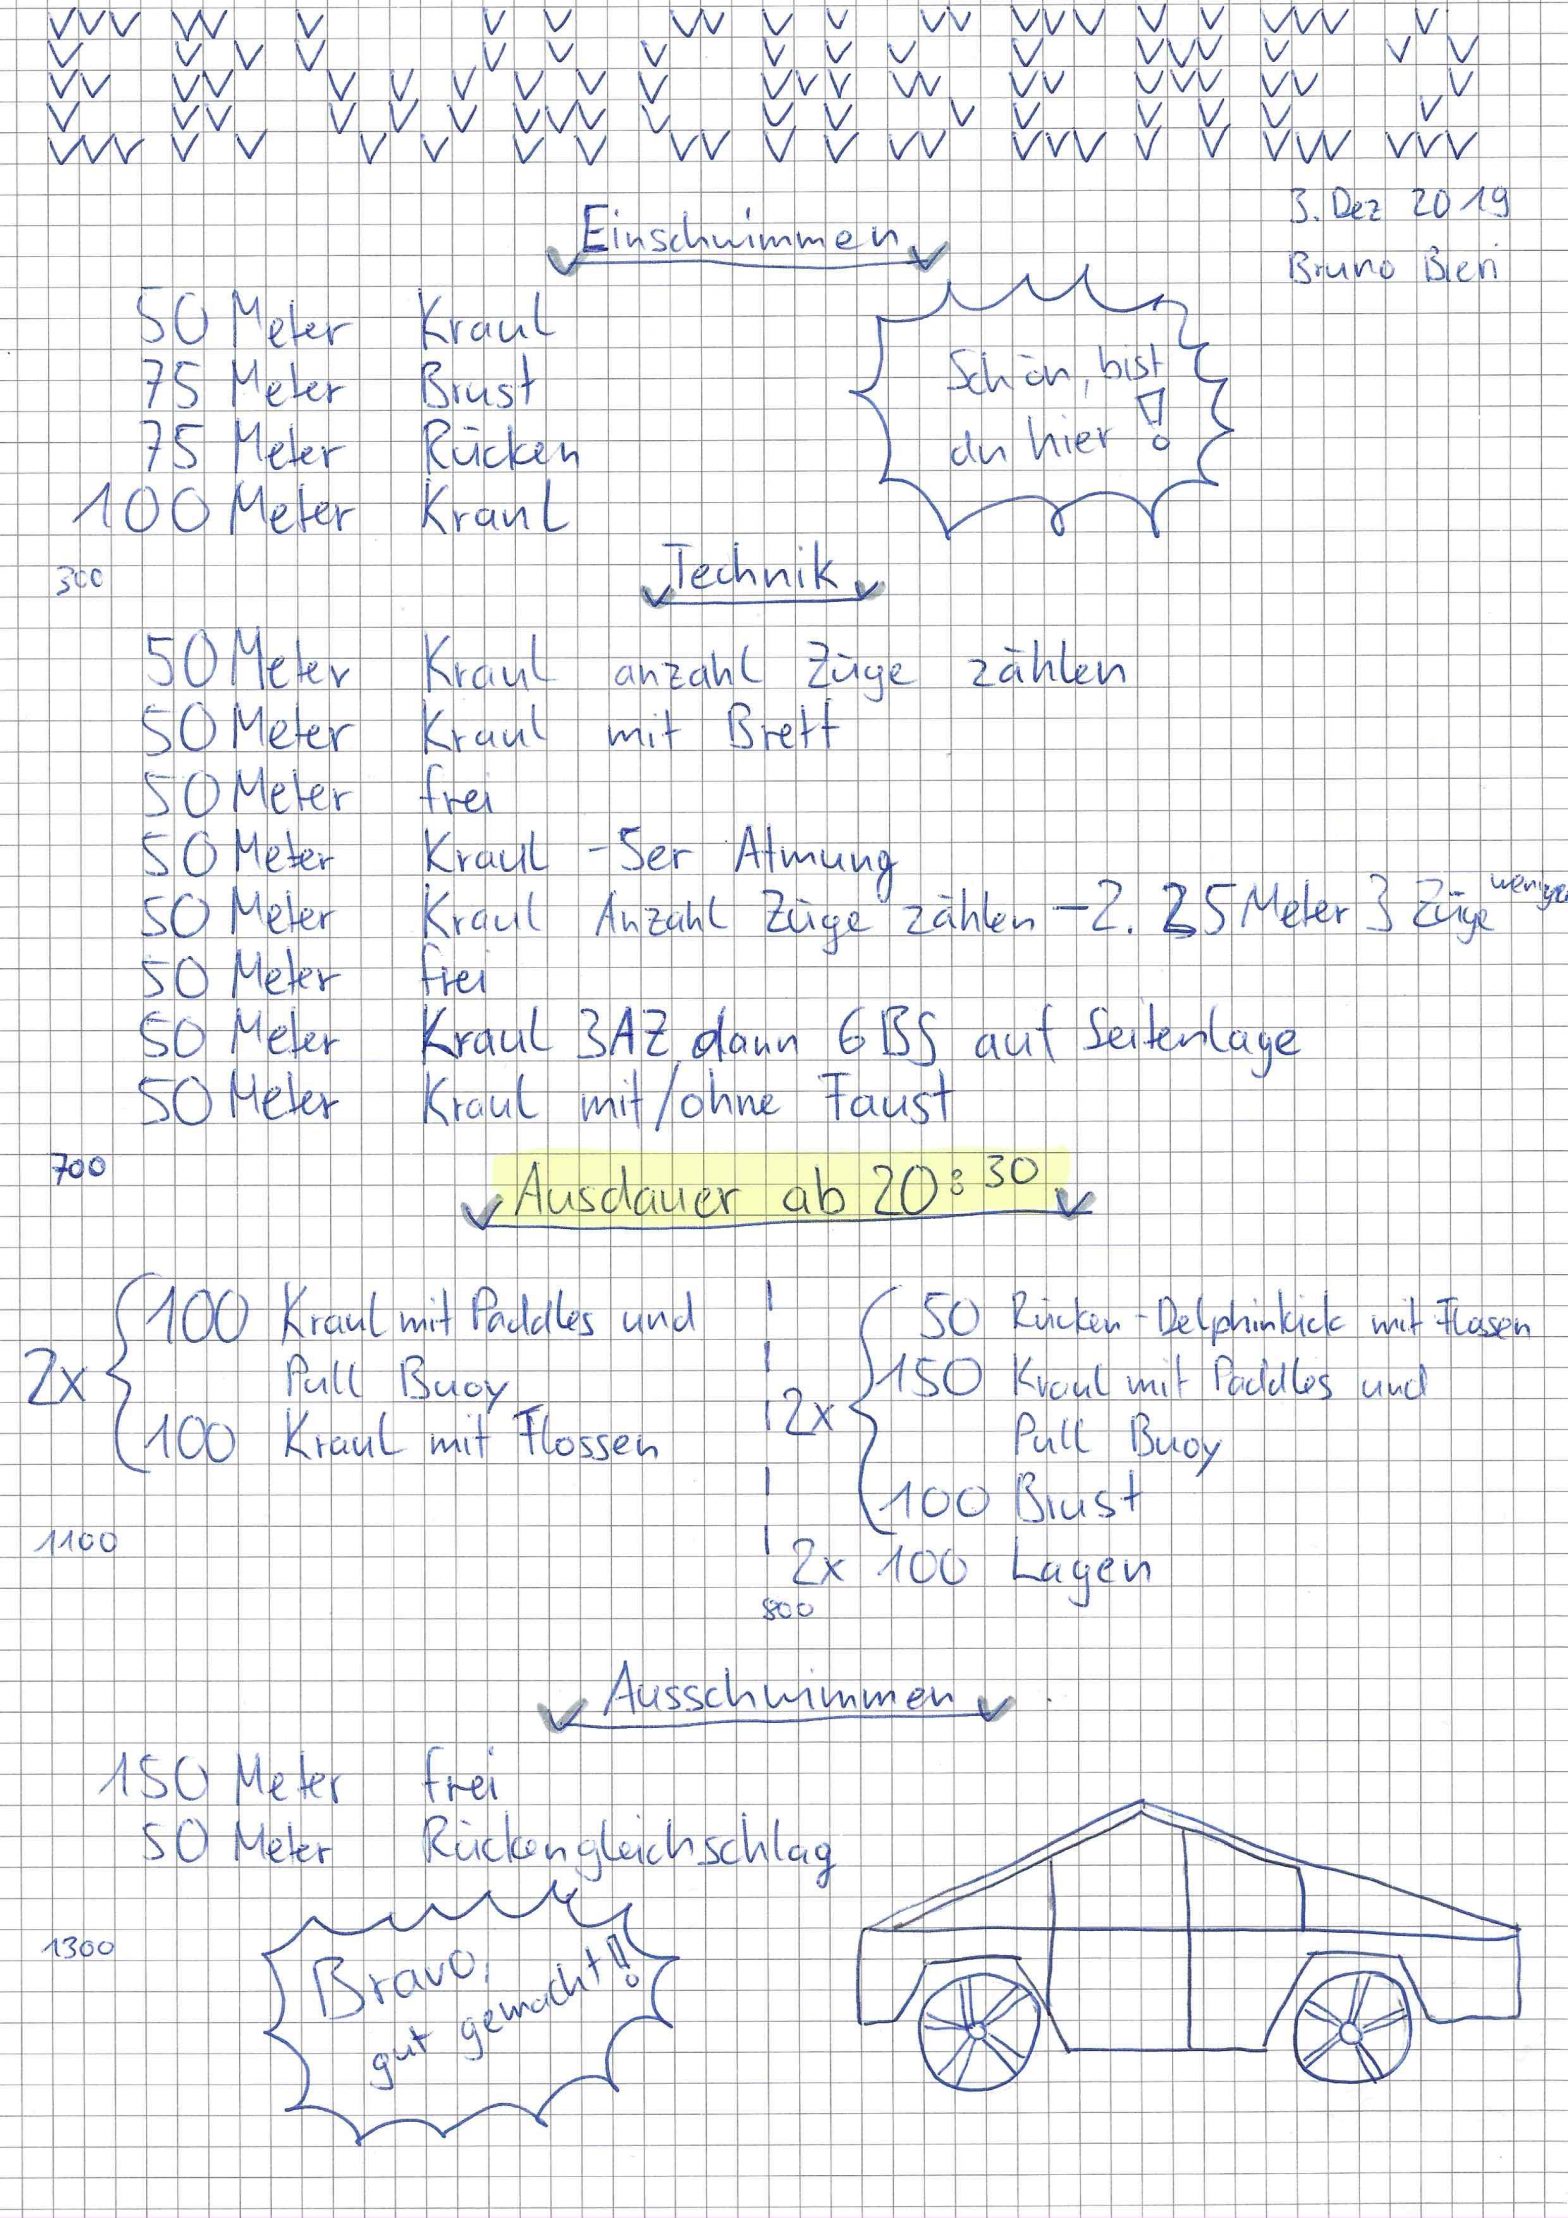 3. Dez 2019
Bruno Bieri
Einschwimmen
50 Meter Kraul
75 Meter Brust
75 Meter Rücken
100 Meter Kraul
Schön, bist
du hier!
300
Technik
50 Meter Kraul anzahl Züge zählen
50 Meter Kraul mit Brett
50 Meter frei
50 Meter Kraul - 5er Atmung
50 Meter Kraul Anzahl Züge zählen - 2. 25 Meter 3 Züge weniger
50 Meter frei
50 Meter Kraul 3AZ dann 6BS auf Seitenlage
50 Meter Kraul mit/ohne Faust
700
Ausdauer ab 20:30
2x
100 Kraul mit Paddles und
Pull Buoy
100 Kraul mit Flossen
1100
2x
50 Rücken-Delphinkick mit Flossen
150 Kraul mit Paddles und
Pull Buoy
100 Brust
2x 100 Lagen
800
Ausschwimmen
150 Meter frei
50 Meter Rückengleichschlag
1300
Bravo,
gut gemacht!!